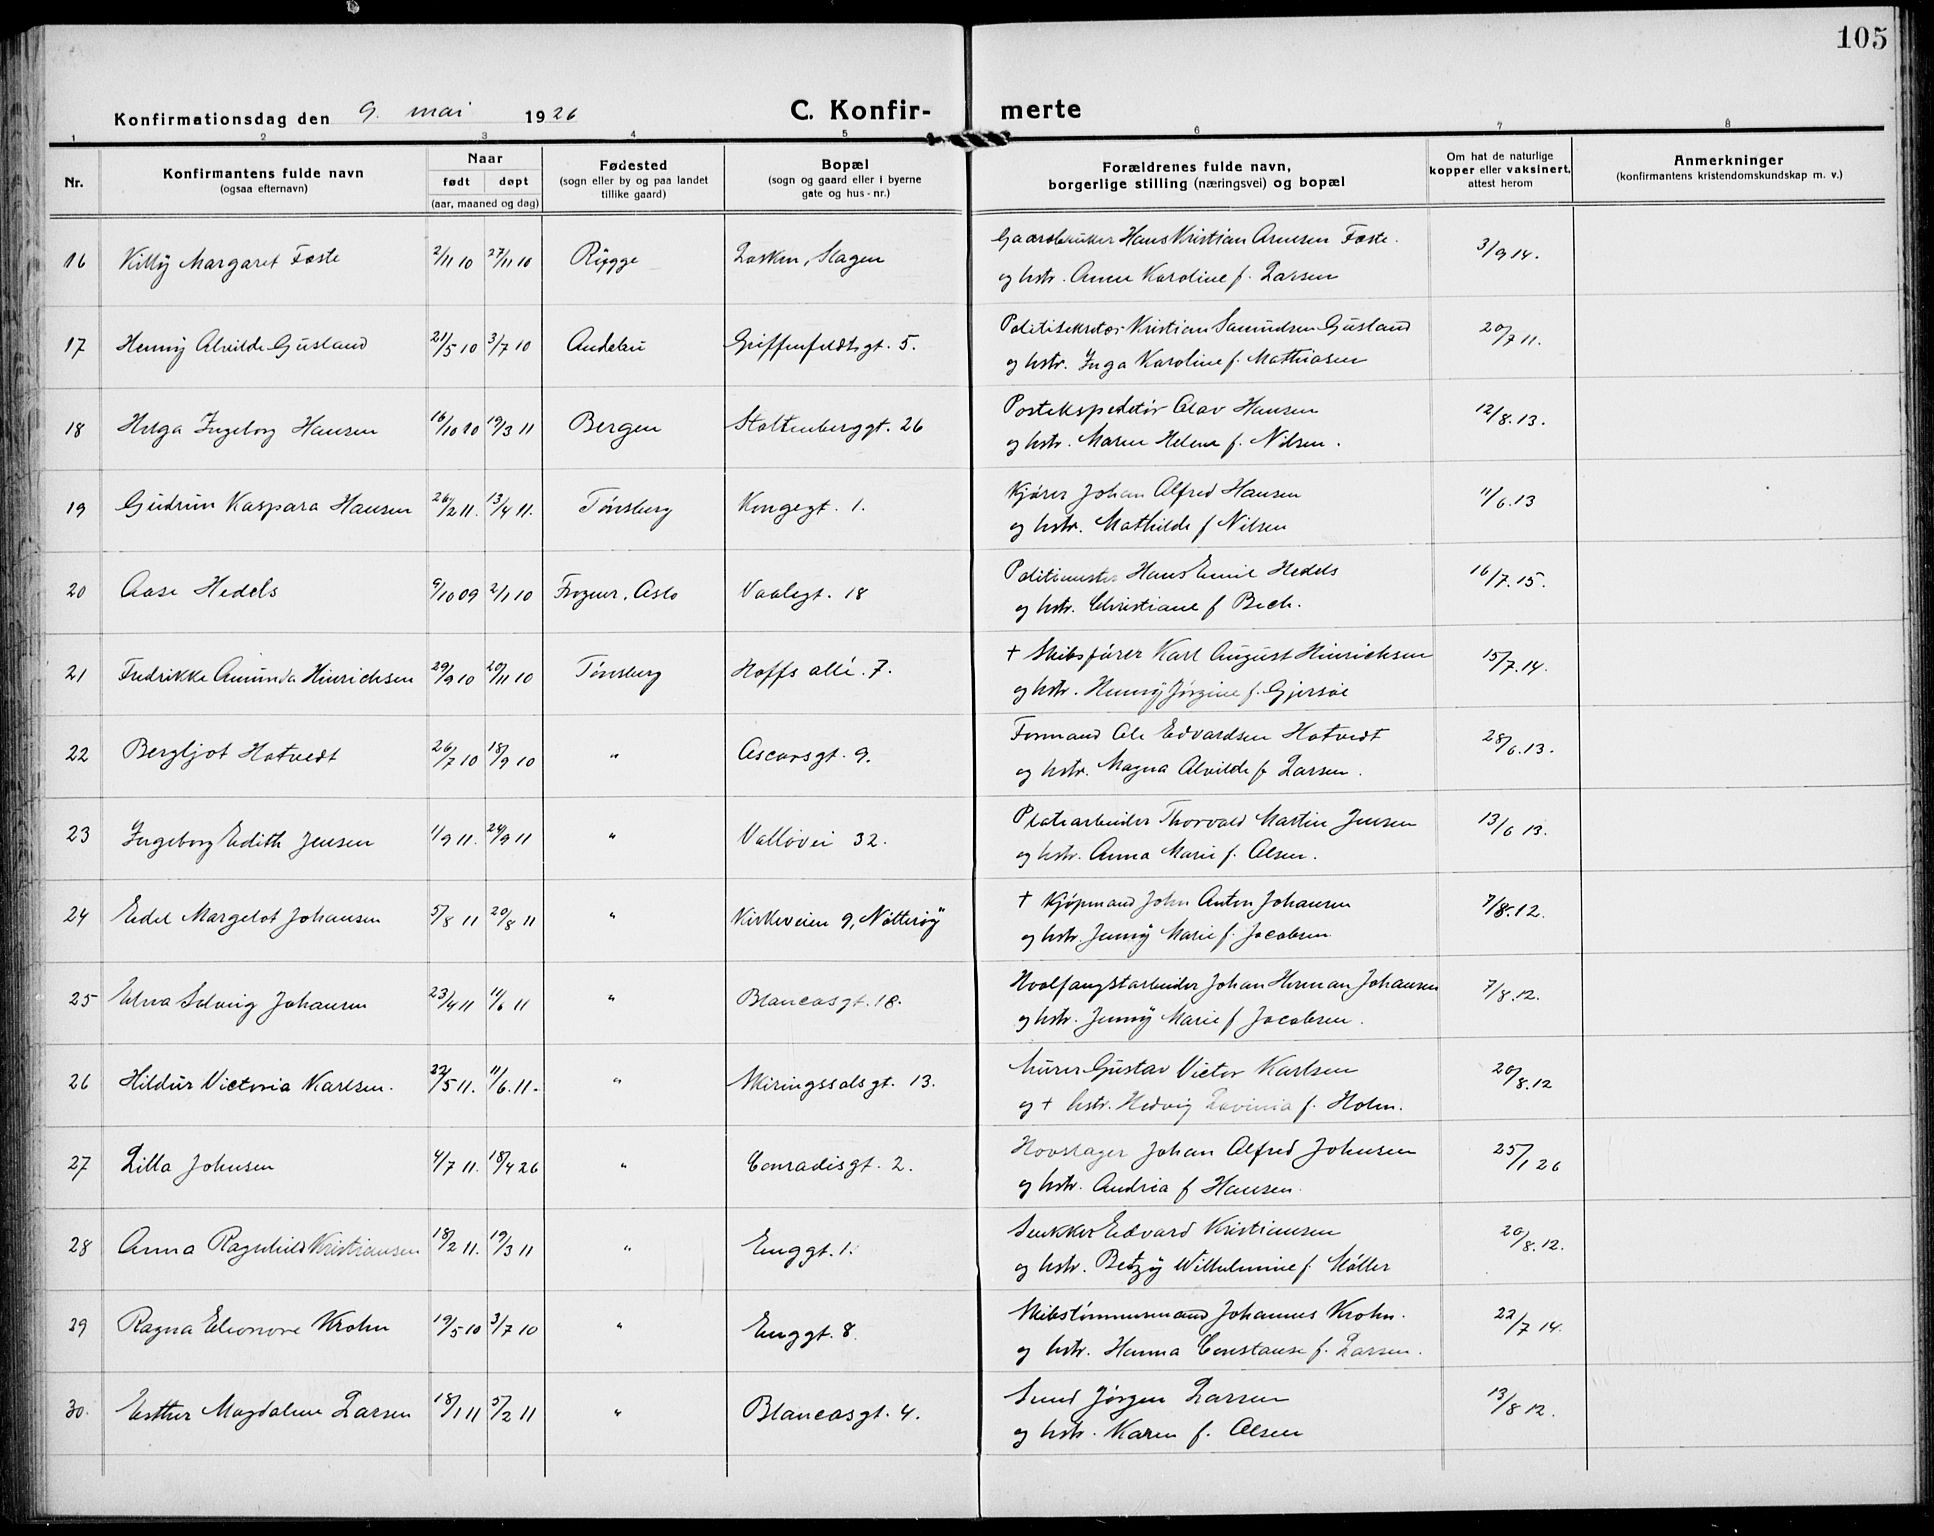 105
Konfirmationsdag den 9. mai 1926
C. Konfir- merte
1 2 3 4 5 6 7 8
Nr.
Konfirmantens fulde navn
(ogsaa efternavn)
Naar
født døpt
(aar, maaned og dag)
Fødested
(sogn eller by og paa landet
tillike gaard)
Bopæl
(sogn og gaard eller i byerne
gate og hus-nr.)
Forældrenes fulde navn,
borgerlige stilling (næringsvei) og bopæl
Om hat de naturlige
kopper eller vaksinert,
attest herom
Anmerkninger
(konfirmantens kristendomskundskap m. v.)
16 Killy Margaret Foste 2/11 10 27/11 10 Rygge Slagen Gaardbruker Hans Kristian Arnesen Foste. 3/9 14.
og hstr. Anne Karoline f. Larsen
17 Henny Alvilde Gusland 21/5 10 3/7 10 Andebu Griffenfeldtsgt. 5. Politisekretær Kristian Samuelsen Gusland 20/7 11.
og hstr. Inga Karoline f. Mathiasen
18 Helga Ingeborg Hansen 16/10 10 19/3 11 Bergen Stoltenberggt. 26 Postekspeditør Olav Hansen 12/8. 13.
og hstr. Maren Helene f. Nilsen.
19 Gudrun Kaspara Hansen 26/2 11. 13/4 11. Tønsberg Kongegt. 1. Kjører Johan Alfred Hansen 11/6. 13
og hstr. Mathilde f Nilsen
20 Aase Hedels 9/10 09 2/1 10 Frogner, Oslo Vaalegt. 18 Politimester Hans Emil Hedels 16/7. 15.
og hstr. Christiane f Bech.
21 Fredrikke Amunda Hinrichsen 29/9 10 20/11 10 Tønsberg Hoffs allé. 7. + Skibsfører Karl August Hinrichsen 15/7. 14.
og hstr. Henny Jørgine f. Gjersøe
22 Bergljot Hotvedt 26/7 10 18/9 10 " Oscarsgt. 9. Formand Ole Edvardsen Hotvedt 28/6. 13.
og hstr. Magna Alvilde f. Larsen.
23 Ingeborg Edith Jensen 1/9 11. 24/9 11 " Valløvei 32. Platearbeider Thorvald Martin Jensen 13/6 13.
og hstr. Anna Marie f. Olsen.
24 Edel Margelot Johansen 5/8 11 20/8 11 " Kirkeveien 9, Nøtterøy + Kjøpmand John Anton Johansen 7/8. 12.
og hstr. Jenny Marie f. Jacobsen.
25 Elna Solveig Johansen 23/4 11 11/6 11 " Blancasgt. 18. Hvalfangstarbeider Johan Herman Johansen 7/8. 12.
og hstr. Jenny Marie f Jacobsen.
26 Hildur Victoria Karlsen. 22/5 11. 11/6. 11. " Skiringssalsgt. 13. Murer Gustav Victor Karlsen 20/8. 12
og + hstr. Hedvig Lovinia f. Holm.
27 Lilla Johnsen 4/7 11. 18/4 26 " Conradisgt. 2. Hovslager Johan Alfred Johnsen 25/1 26
og hstr. Andrea f Hansen.
28 Anna Ragnhild Kristiansen 18/2 11. 19/3 11 " Enggt. 1. Snekker Edvard Kristiansen 20/8. 12.
og hstr. Betzy Wilhelmine f. Møller
29 Ragna Eleonore Krohn 19/5 10 3/7 10 " Enggt. 8. Skibstømmermand Johannes Krohn. 22/7 14.
og hstr. Hanna Constanse f. Larsen.
30. Esther Magdalene Larsen 18/1 11 5/2 11 " Blancasgt. 4. Smed Jørgen Larsen 13/8 12.
og hstr. Karen f. Olsen